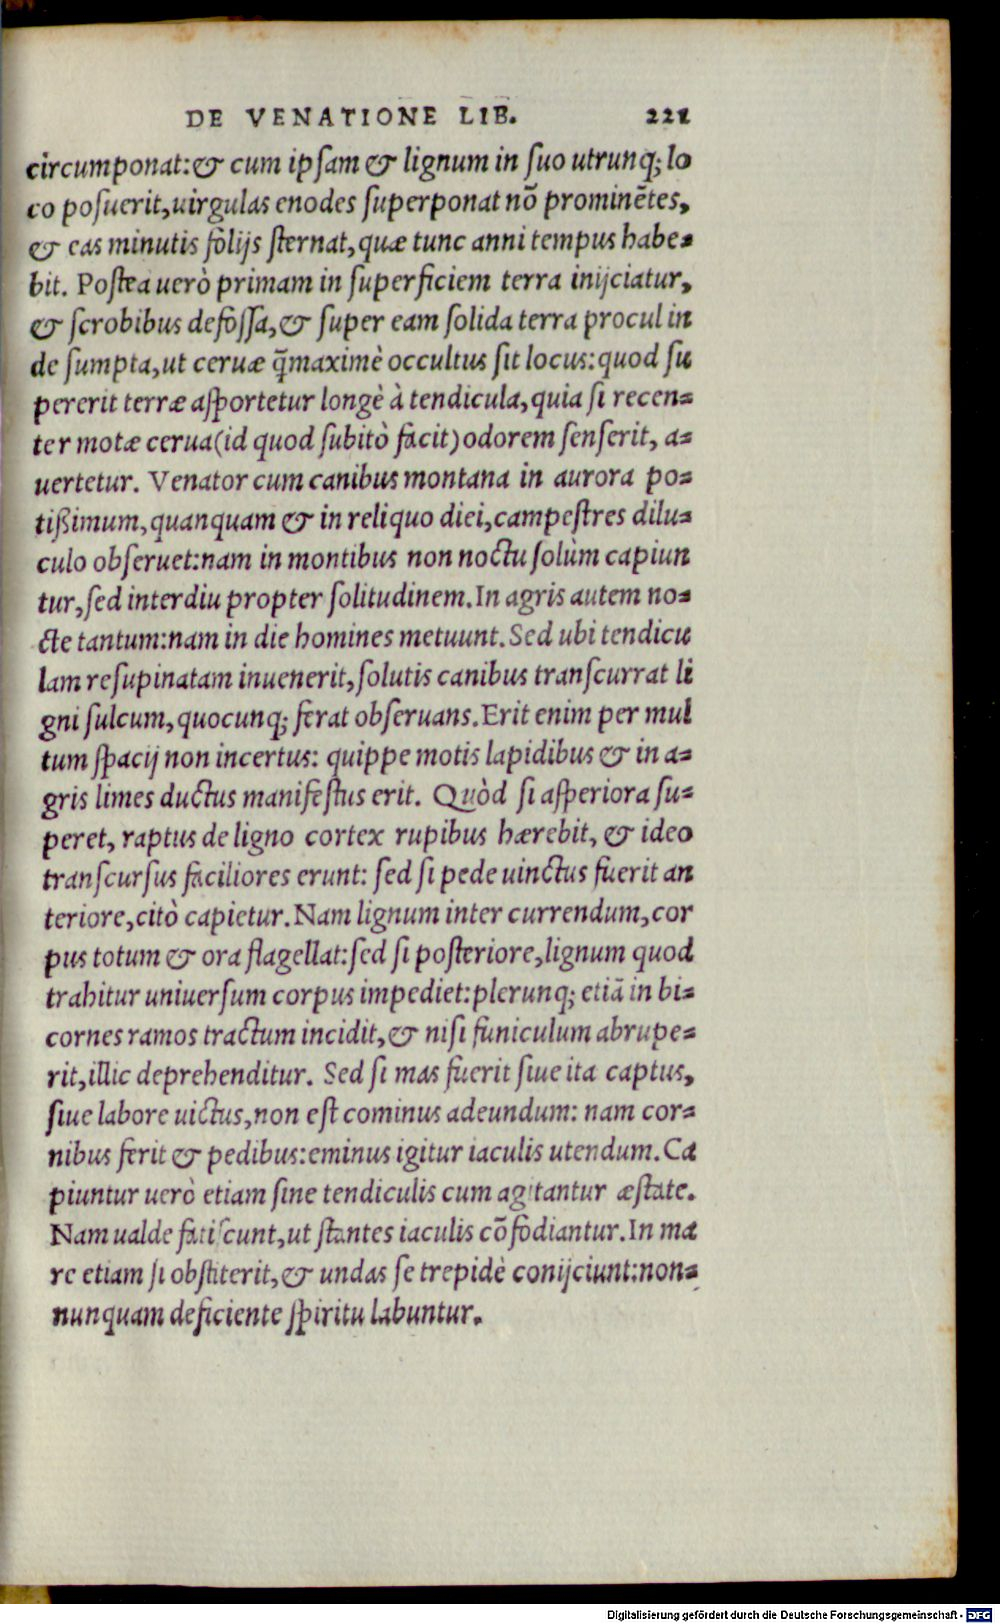 DE VENATIONE LIB. 221
circumponat:& cum ipſam & lignum in ſuo utrunq; lo
co poſuerit,uirgulas enodes ſuperponat nõ prominẽtes,
& eas minutis folijs ſternat,quæ tunc anni tempus habe=
bit. Poſtea uerò primam in ſuperficiem terra inijciatur,
& ſcrobibus defoſſa,& ſuper eam ſolida terra procul in
de ſumpta,ut ceruæ q̃maximè occultus ſit locus:quod ſu
pererit terræ aſportetur longè à tendicula,quia ſi recen=
ter motæ cerua(id quod ſubitò facit)odorem ſenſerit, a=
uertetur. Venator cum canibus montana in aurora po=
tißimum,quanquam & in reliquo diei,campeſtres dilu=
culo obſeruet:nam in montibus non noctu ſolùm capiun
tur,ſed interdiu propter ſolitudinem.In agris autem no=
cte tantum:nam in die homines metuunt.Sed ubi tendicu
lam reſupinatam inuenerit,ſolutis canibus tranſcurrat li
gni ſulcum,quocunq; ferat obſeruans.Erit enim per mul
tum ſpacij non incertus: quippe motis lapidibus & in a=
gris limes ductus manifeſtus erit. Quòd ſi aſperiora ſu=
peret, raptus de ligno cortex rupibus hærebit, & ideo
tranſcurſus faciliores erunt: ſed ſi pede uinctus fuerit an
teriore,citò capietur.Nam lignum inter currendum,cor
pus totum & ora flagellat:ſed ſi poſteriore,lignum quod
trahitur uniuerſum corpus impediet:plerunq; etiã in bi=
cornes ramos tractum incidit,& niſi funiculum abrupe=
rit,illic deprehenditur. Sed ſi mas fuerit ſiue ita captus,
ſiue labore uictus,non eſt cominus adeundum: nam cor=
nibus ferit & pedibus:eminus igitur iaculis utendum.Ca
piuntur uerò etiam ſine tendiculis cum agitantur æſtate.
Nam ualde fatiſcunt,ut ſtantes iaculis cõfodiantur.In ma
re etiam ſi obſtiterit,& undas ſe trepidè conijciunt:non=
nunquam deficiente ſpiritu labuntur.
Digitalisierung gefördert durch die Deutsche Forschungsgemeinschaft - DFG